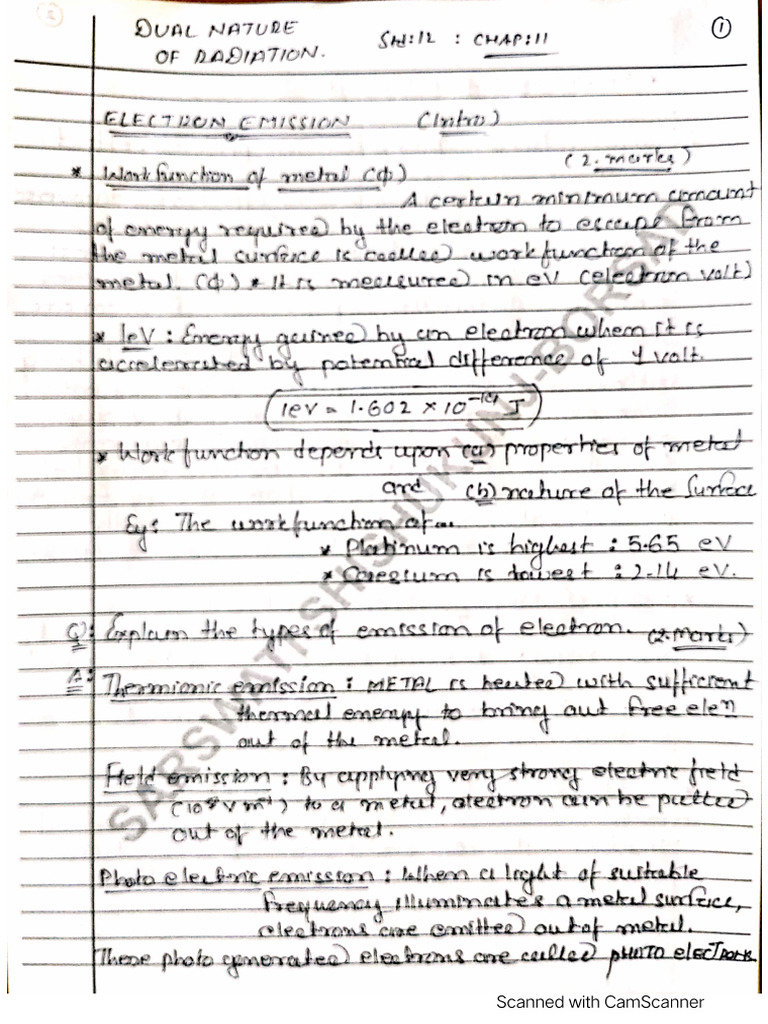 DUAL NATURE
OF RADIATION.
Std:12 : CHAP:11
1
ELECTRON EMISSION (Intro)
(2. marks)
* Work function of metal (ϕ)
A certain minimum amount
of energy required by the electron to escape from
the metal surface is called work function of the
metal. (ϕ) * It is measured in eV (electron volt)
* 1eV : Energy gained by an electron when it is
accelerated by potential difference of 1 volt.
1eV = 1.602 × 10⁻¹⁹ J
* Work function depends upon (a) properties of metal
and (b) nature of the surface
Eg: The work function of
* Platinum is highest : 5.65 eV
* Caesium is lowest : 2.14 eV.
Q: Explain the types of emission of electron. (2. marks)
A: Thermionic emission : METAL is heated with sufficient
thermal energy to bring out free eleⁿ
out of the metal.
Field emission : By applying very strong electric field
(10⁸ V m⁻¹) to a metal, electron can be pulled
out of the metal.
Photo electric emission : When a light of suitable
frequency illuminates a metal surface,
electrons are emitted out of metal.
These photo generated electrons are called PHOTO ELECTRONS
SARSWATI SHISHUKUNJ-BORSAD
Scanned with CamScanner